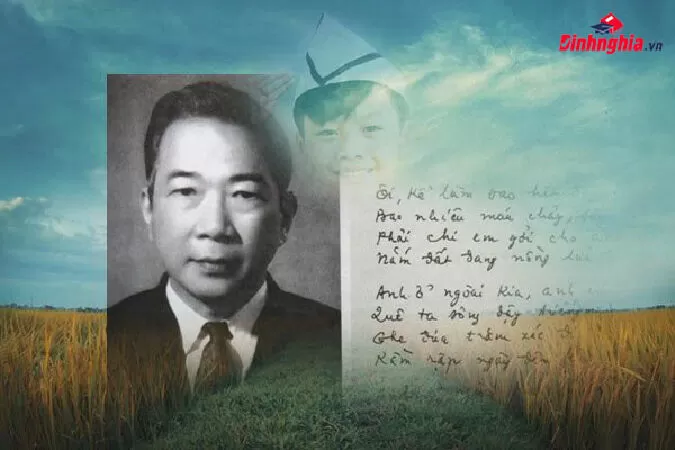 Dinhnghia.vn
Ôi, kể làm sao
Bao nhiêu máu chảy,
Phải chi em gởi cho
Nắm đất đang nồng
Anh ở ngoài kia, anh
Quê ta sông dậy
trăm xác
Rầm rập ngày đêm